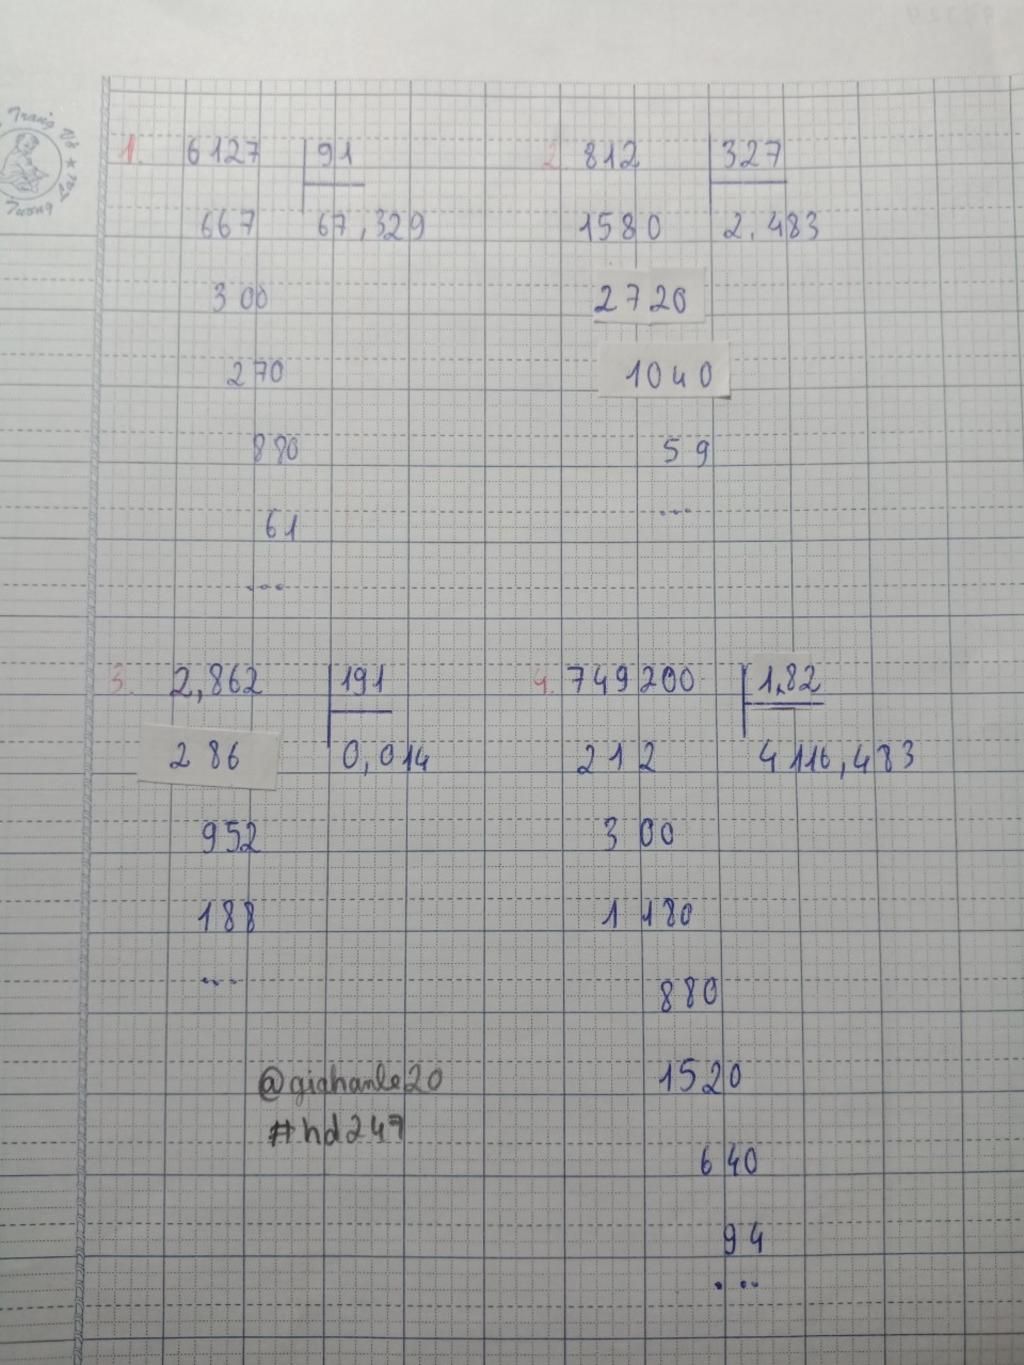 1. 6127 91
667 67,329
300
270
880
61
...
2. 812 327
1580 2,483
2720
1040
59
...
3. 2,862 191
286 0,014
952
188
...
4. 749200 1,82
212 4116,483
300
1180
880
1520
640
94
...
@giahanle20
#hd247